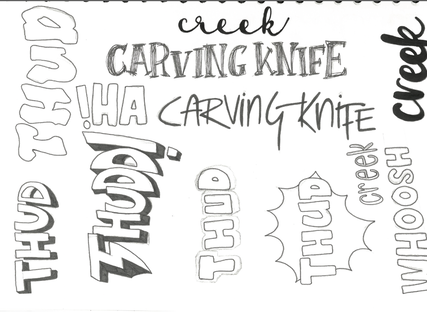 creek
CARVING KNIFE
THUD
AH!
CARVING KNIFE
creek
THUDD!
THUD
THUD
THUD
creek
WHOOSH